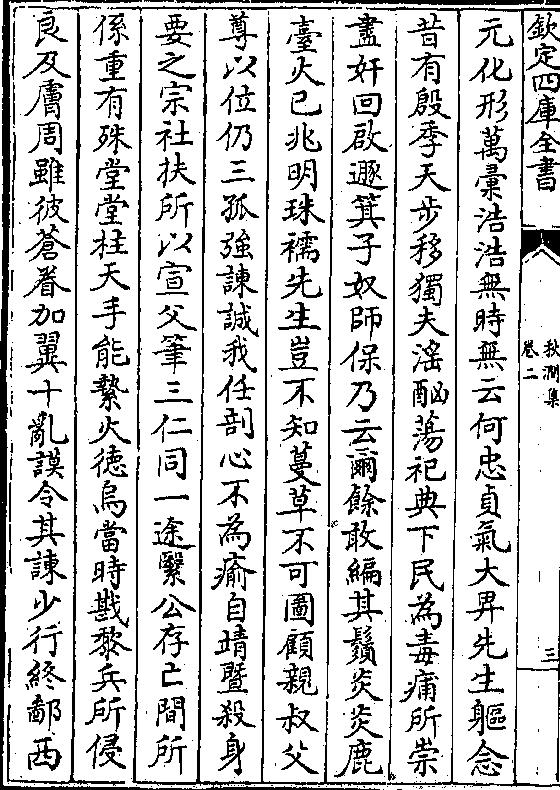 欽定四庫全書
秋澗集
卷二
三
元化形萬彚浩浩無時無云何忠貞氣大畀先生軀念
昔有殷季天步移獨夫滛酗蕩祀典下民為毒痡所崇
盡奸回啟遯箕子奴師保乃云爾餘敢編其鬚炎炎鹿
臺火已兆明珠襦先生豈不知蔓草不可圖顧親叔父
尊以位仍三孤強諫誠我任剖心不為瘉自靖暨殺身
要之宗社扶所以宣父筆三仁同一途繄公存亡間所
係重有殊堂堂柱天手能縶火徳烏當時戡黎兵所侵
良及膚周雖彼蒼眷加翼十亂謨令其諫少行終鄰西